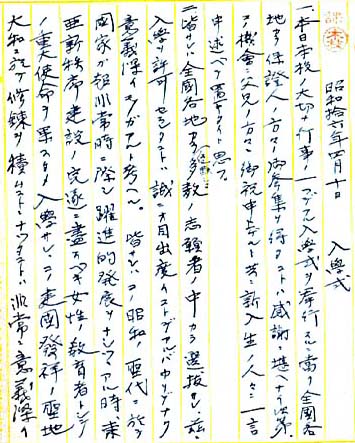 課本
昭和拾六年四月十日
入學式
一、本日本校ノ大切ナ行事ノ一ツデアル入學式ヲ擧行スルニ當リ全國各
地ヨリ保證人ノ方々ノ御參集ヲ得タコトハ感謝ニ堪ヘナイ次第
コノ機會ニ父兄ノ方々ニ御祝申上ゲルト共ニ新入生ノ人々ニ一言
申述ベテ置キタイト思フ
二、皆サンハ全國各地カラノ多數ノ志願者ノ中カラ選抜サレ茲ニ
入學ヲ許可セラレタコトハ誠ニオ目出度イコトデアルバカリデナク
意義深イモノガアルト考ヘル 皆サンハコノ昭和ノ聖代ニ於テ
國家ガ超非常時ニ際シ躍進的發展ヲナシツツアル時 東
亜新秩序建設ノ完遂ニ盡スベキ女性ノ教育者トシテ
ノ重大使命ヲ果ス爲入學サレ、コノ建國發祥ノ聖地
大和ニ於テ修錬ヲ積ムコトニナツタコトハ非常ニ意義深イ